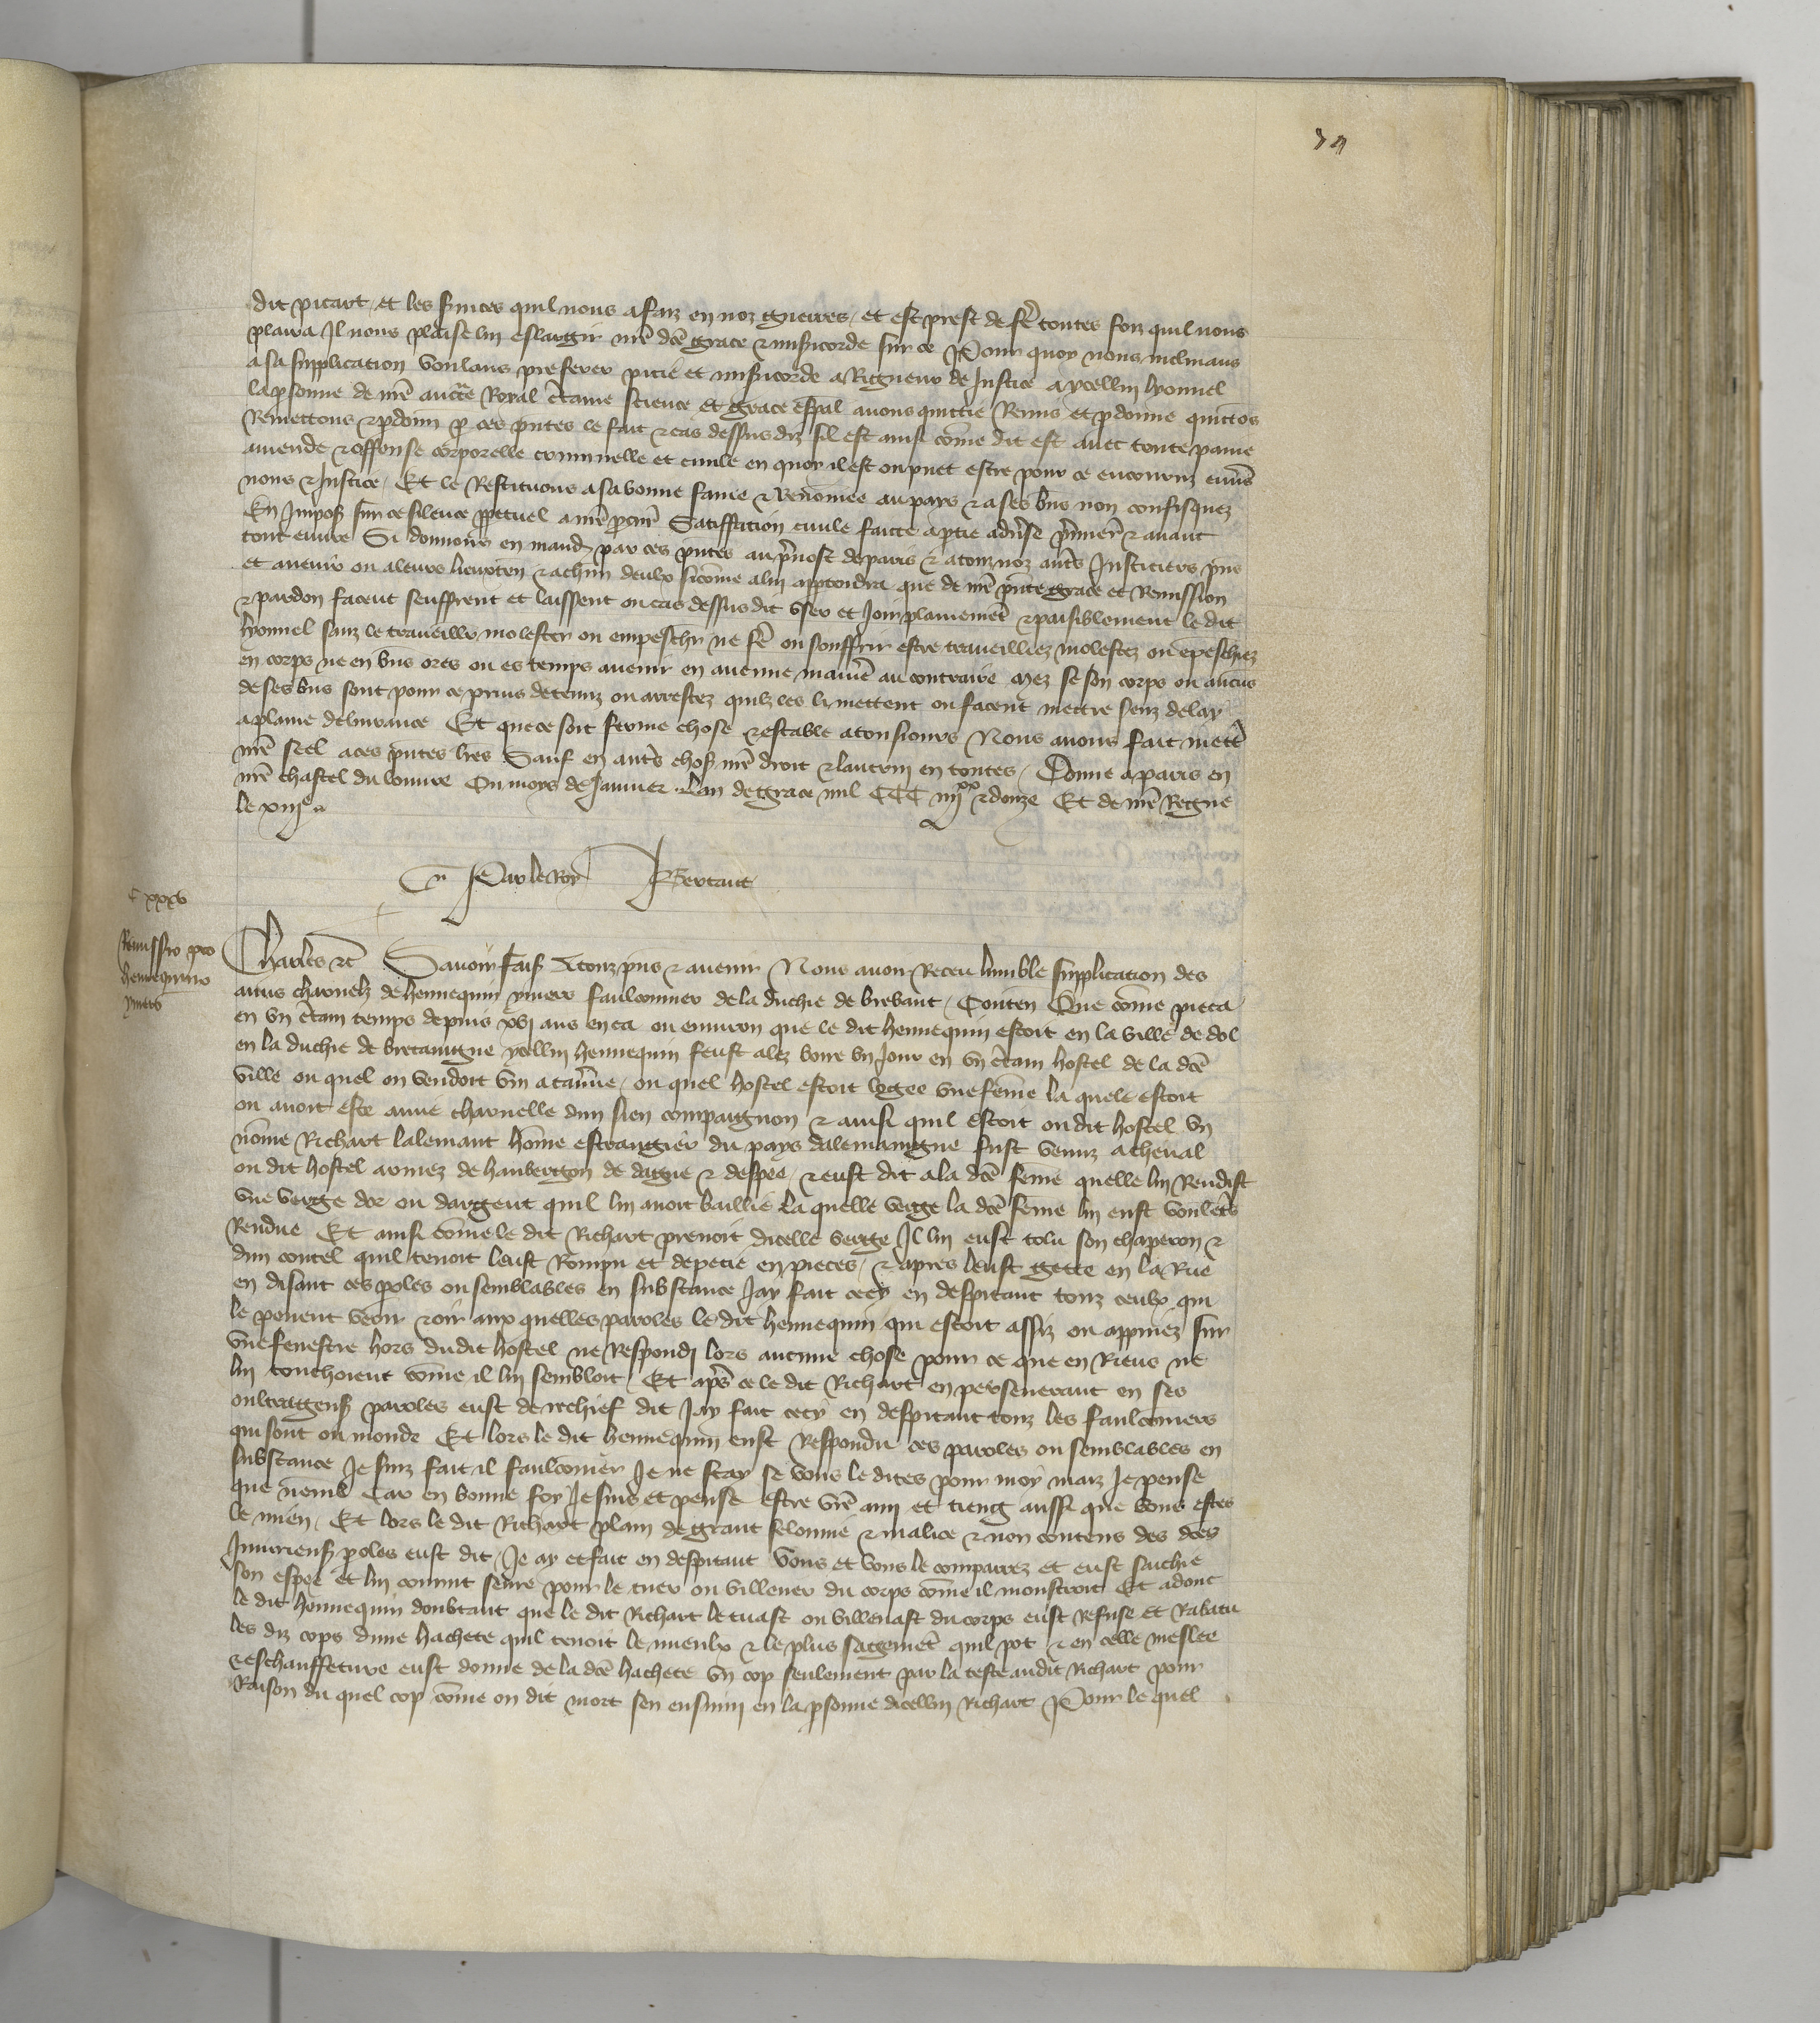 dit picart et les suices quil nous a faiz en noz guerres et est prest de fe toutes foiz quil nous
plaira Il nous plaise lui eslargir nre dce grace & misicorde sur ce Pour quoy nous inclinans
a sa supplication voulans preferer pitie et misicorde a Rigueur de Justice a ycellui lyonnel
la psonne de nre aucte Royal ctaine science et grace espal avons quittie Remis et pdonne quittos
Remettons & pdonn p ces pntes le fait & cas dessus diz sil est ainsi come dit est avec toute paine
amende & offense corporelle criminelle et civile en quoy il est ou puet estre pour ce encouruz envs
nous & Justice Et le Restituons a sa bonne fame & Renomee au pays & a ses bns non confisquez
En Impos sur ce silence ppetuel a nre pcur Satiffation civile faicte a ptie adverse pmier & avant
tout euvre Si donnons en mand par ces pntes au pvost de paris & a touz noz autrs Justiciers pns
et avenir ou a leurs lieuxten & a chun deulx sicome a lui apptendra que de nre pnte grace et Remission
& pardon facent seuffrent et laissent ou cas dessus dit user et Joir plainement & paisiblement le dit
lyonnel sanz le traveillr molester ou empeschr ne fe ou souffrir estre traveilliez molestez ou epeschiez
en corps ne en bns ores ou es temps avenir en aucune manie au contraire Mez se son corps ou aucus
de ses bns sont pour ce prins detenuz ou arrestez quilz les li mettent ou facent mettre senz delay
a plaine delivrance Et que ce soit ferme chose & estable a tousiours Nous avons fait mett
nre seel a ces pntes lres Sauf en autrs chos nre droit & lautruy en toutes Donne a paris en
nre chastel du louvre Ou moys de Janvier Lan de grace mil CCC iiijxx & douze Et de nre Regne
le xiije
Par le Roy Bertaut
C xxxv
Remissio pro
hennequino
ymers
Charles &c Savoir Fais A touz pns & avenir Nous avon Receu lumble supplication des
amis charnelz de hennequin ymers faulconnier de la duchie de brebant Conten Que come pieca
en un ctain temps depuis xvj ans en ca ou environ que le dit hennequin estoit en la ville de dol
en la duchie de bretaingne ycellui hennequin feust alez boire un Jour en un ctain hostel de la dce
ville ou quel on vendoit vin a tavne ou quel hostel estoit logee une feme la quele estoit
ou avoit este amie charnelle dun sien compaignon & ainsi quil estoit ou dit hostel un
nome Richart lalemant home estrangier du pays dalemaingne fust venuz a cheval
ou dit hostel armez de haubergon de dague & despee & eust dit a la dce feme quelle lui Rendist
une verge dor ou dargent quil lui avoit baillie la quelle verge la dce feme lui eust voulents
Rendue Et ainsi come le dit Richart prenoit dicelle verge Il lui eust tolu son chaperon &
dun coutel quil tenoit leust Rompu et depecie en pieces & apres leust gette en la Rue
en disant ces poles ou semblables en substance Jay fait cecy en despitant touz ceulx qui
le peuent veoir & oir aux quelles paroles le dit hennequin qui estoit assiz ou appuiez sur
une fenestre hors du dit hostel ne Respondi lors aucune chose pour ce que en Riens ne
lui touchoient come il lui sembloit Et apres ce le dit Richart en perseverant en ses
oultrageus paroles eust de rechief dit Jay fait cecy en despitant touz les faulconniers
qui sont ou monde Et lors le dit hennequin eust Respondu ces paroles ou semblables en
substance Je suiz fait il faulconier Je ne scay se vous le dites pour moy maiz Je pense
que nenil Car en bonne foy Je suis et pense estre vre amy et tieng aussi que vous estes
le mien Et lors le dit Richart plain de grant felonnie & malice & non contens des dces
Iniurieus poles eust dit Je ay ce fait en despitant vous et vous le comparrez et eust sachie
son espee et lui courut seure pour le tuer ou villener du corps come il monstroit Et adonc
le dit hennequin doubtant que le dit Richart le tuast ou villenast du corps eust Refuse et Rabatu
les diz cops dune hachete quil tenoit le mieulx & le plus sagement quil pot & en celle meslee
& eschauffeture eust donne de la dce hachete un cop seulement par la teste au dit Richart pour
Raison du quel cop come on dit mort sen ensuivi en la psonne dicellui Richart Pour le quel